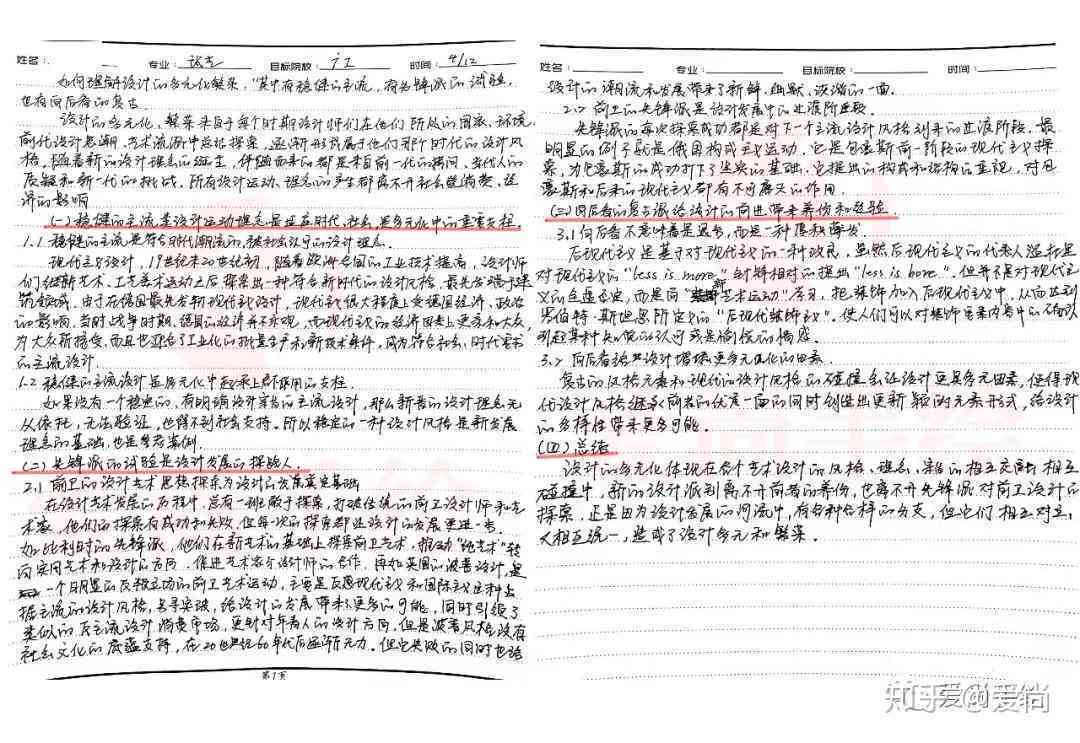 姓名： 专业： 设艺 目标院校： 广工 时间： 4/12
如何理解设计的多元化繁荣，“其中有稳健的主流，有先锋派的试验，
也有向后看的复古
设计的多元化、繁荣来自于每个时期设计师们在他们所处的国家、环境、
前代设计思潮、艺术流派中总结探索，逐渐形成属于他们那个时代的设计风
格，随着新的设计理念的诞生，伴随而来的都是来自前一代的拷问、当代人的
质疑和新一代的挑战。所有设计运动、理念的产生都离不开社会、经
济的影响
(一)稳健的主流是设计运动理念是适应时代、社会，是多元化中的重要支柱
1.1 稳健的主流是符合时代潮流的、被社会认可的设计理念。
现代主义设计，19世纪末20世纪初，随着欧洲各国的工业技术提高，设计师
们在新艺术、工艺美术运动之后探索出一种符合新时代的设计风格，最先发端于建
筑领域。由于在德国最先发新现代主义设计，现代主义很大程度上受德国经济、政治
的影响。当时战争时期，德国的经济并不乐观，而现代主义的经济因素上更亲和大众，
为大众所接受，而且也迎合了工业化的批量生产和新技术条件，成为符合社会、时代需求
的主流设计.
1.2 稳健的主流设计是多元化中起承上启下作用的支柱.
如果没有一个稳定的、有明确设计宗旨的主流设计，那么新晋的设计理念无
从依托，无法验证，也得不到社会支持。所以稳定的一种设计风格是新发展
理念的基础，也是参考案例.
(二)先锋派的试验是设计发展的探险人.
2.1 前卫的设计艺术思想探索为设计的发展奠定基础
在设计艺术发展的历程中，总有一班敢于探索，打破传统的前卫设计师和艺
术家，他们的探索有成功和失败，但每一次的探索都让设计的发展更进一步.
如比利时的先锋派，他们在新艺术的基础上探索前卫艺术，推动“纯艺术”转
向实用艺术和设计的方向，促进艺术家与设计师的合作。再如英国的波普设计，是
一个明显的反叛立场的前卫艺术运动，主要是反感现代主义和国际主义这种占
据主流的设计风格，另寻突破，给设计的发展带来更多的可能，同时引领了
类似的反主流设计消费市场，更针对年青人的设计方向，但是波普风格没有
社会文化的底蕴支持，在20世纪60年代后逐渐无力。但它失败的同时也给
第1页
姓名： 专业： 目标院校： 时间：
设计的潮流和发展带来了新鲜、幽默、诙谐的一面.
2.2 前卫的先锋派是设计发展中的过渡阶段.
先锋派的每次探索成功都是对下一个主流设计风格到来的过渡阶段。最
明显的例子就是俄国构成主义运动，它是包豪斯前一阶段的现代主义探
索，为包豪斯的成功打下了坚实的基础，它提出的构成和结构的重视，对包
豪斯和后来的现代主义都有不可磨灭的作用.
(三)向后看的复古派给设计的前进带来养份和经验
3.1 向后看不意味着是退步，而是一种厚积薄发.
后现代主义是基于对现代主义的一种改良，虽然后现代主义的代表人温丘里
对现代主义的“less is more”针锋相对的提出“less is bore”，但并不是对现代主
义的全盘否定，而是向“新艺术运动”学习，把装饰加入后现代主义中，从而达到
罗伯特·斯坦恩所定义的“后现代装饰主义”。使人们可以对装饰元素内容中的确认
引起某种知悦的认可或是愉悦的情感.
3.2 向后看给其设计增添更多元值化的因素.
复古的风格元素和现代的设计风格的碰撞会让设计更具多元因素，使得现
代设计风格继承前者的优良一面的同时创造出更新颖的元素形式，给设计
的多样性带来更多可能.
(四)总结
设计的多元化体现在各个艺术设计的风格、理念、宗旨的相互交融，相互
碰撞中，新的设计派别离不开前者的养份，也离不开先锋派对前卫设计的
探索，还是因为设计发展的河流中，有各种各样的分支，但它们相互对立，
又相互统一，造成了设计多元和繁荣.
知乎 @爱尚